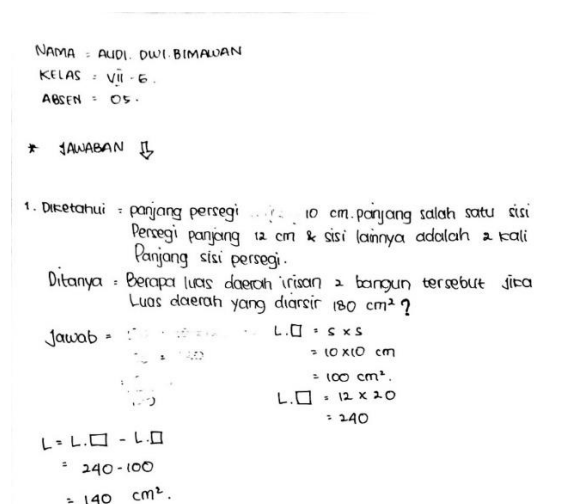 NAMA : AUDI. DWI. BIMAWAN
KELAS : VII - 6.
ABSEN : 05.
* JAWABAN ⇩
1. Diketahui : panjang persegi 10 cm. panjang salah satu sisi
Persegi panjang 12 cm & sisi lainnya adalah 2 kali
Panjang sisi persegi.
Ditanya : Berapa luas daerah irisan 2 bangun tersebut jika
Luas daerah yang diarsir 180 cm² ?
Jawab = L.□ = s x s
= 10 x 10 cm
= 100 cm².
L.□ = 12 x 20
= 240
L = L.□ - L.□
= 240 - 100
= 140 cm².